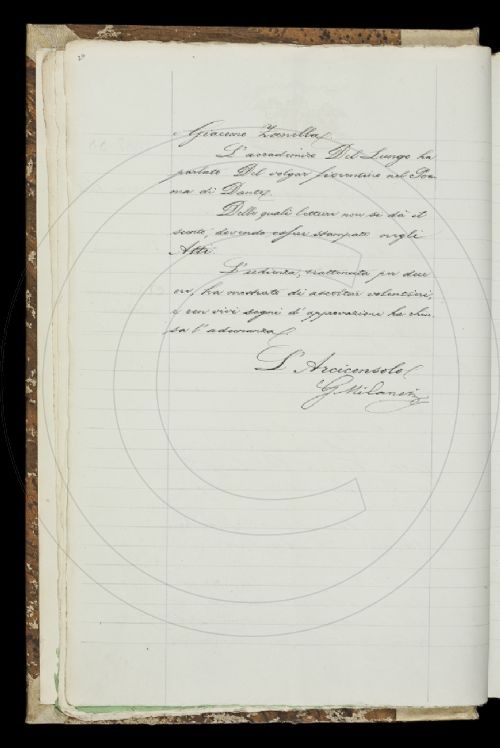 Giacomo Zanella.
L'accademico Del Lungo ha
parlato Del volgar fiorentino nel Poe-
ma di Dante.
Delle quali letture non si dà il
sunto, dovendo esser stampate negli
Atti.
L'udienza, trattenuta per due
ore, ha mostrato di ascoltar volentieri,
e con vivi segni d'approvazione ha chiu-
sa l'adunanza.
L'Arciconsolo
G. Milanesi